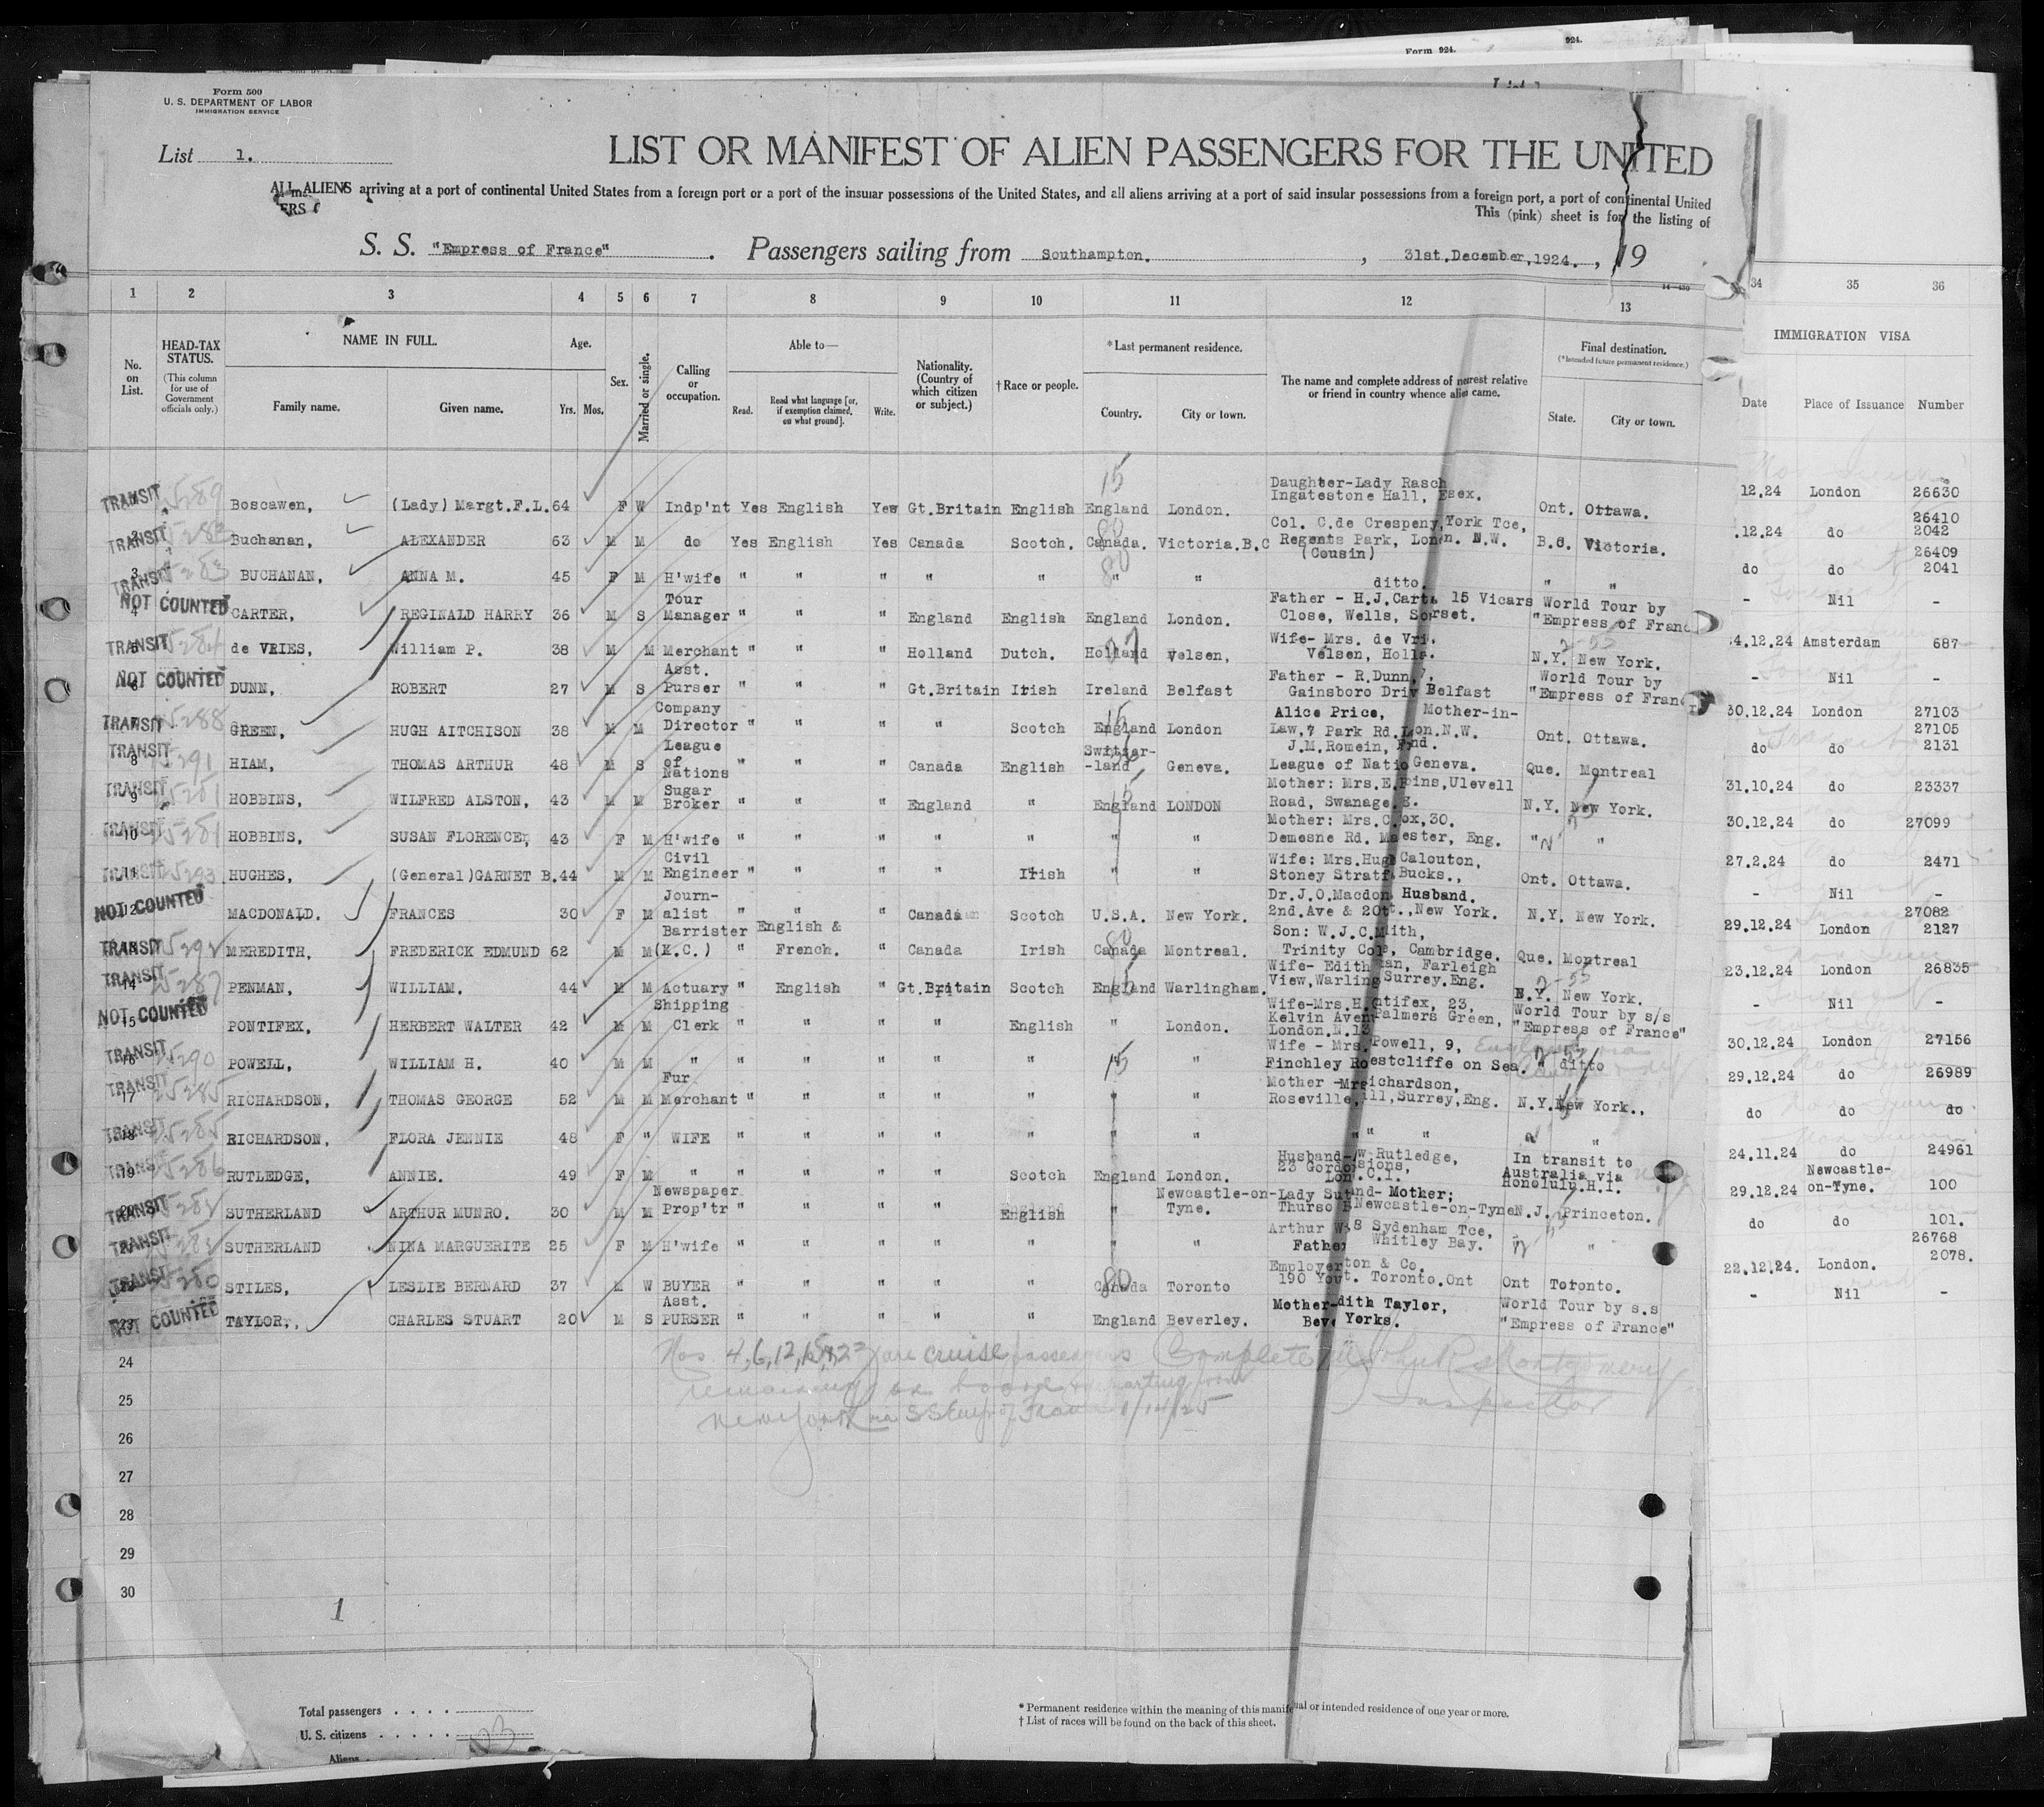 Form 924.
924.
Form 500
U. S. DEPARTMENT OF LABOR
IMMIGRATION SERVICE
List 1.
LIST OR MANIFEST OF ALIEN PASSENGERS FOR THE UNITED
ALL ALIENS arriving at a port of continental United States from a foreign port or a port of the insular possessions of the United States, and all aliens arriving at a port of said insular possessions from a foreign port, a port of continental United
This (pink) sheet is for the listing of
S. S. "Empress of France" . Passengers sailing from Southampton. , 31st.December,1924. , 19
1 2 3 4 5 6 7 8 9 10 11 12 13 34 35 36
No. on List.
HEAD-TAX STATUS.
(This column for use of Government officials only.)
NAME IN FULL.
Family name. Given name.
Age.
Yrs. Mos.
Sex.
Married or single.
Calling or occupation.
Able to—
Read. Read what language [or, if exemption claimed, on what ground]. Write.
Nationality. (Country of which citizen or subject.)
† Race or people.
* Last permanent residence.
Country. City or town.
The name and complete address of nearest relative or friend in country whence alien came.
Final destination.
(*Intended future permanent residence.)
State. City or town.
IMMIGRATION VISA
Date Place of Issuance Number
TRANSIT Boscawen, (Lady) Margt.F.L. 64 F W Indp'nt Yes English Yes Gt.Britain English England London. Daughter-Lady Rasch Ingatestone Hall, Esex. Ont. Ottawa. 12.24 London 26630
TRANSIT 2 Buchanan, ALEXANDER 63 M M do Yes English Yes Canada Scotch. Canada. Victoria.B.C Col. C.de Crespeny,York Tce, Regents Park, Lon n. N.W. (Cousin) B.C. Victoria. .12.24 do 26410 2042
TRANSIT 3 BUCHANAN, ANNA M. 45 F M H'wife " " " " " " " ditto. " " do do 26409 2041
NOT COUNTED 4 CARTER, REGINALD HARRY 36 M S Tour Manager " " " England English England London. Father - H.J.Cart 15 Vicars Close, Wells, So rset. World Tour by "Empress of Franc - Nil -
TRANSIT 5 de VRIES, William P. 38 M M Merchant " " " Holland Dutch. Holland Velsen, Wife- Mrs. de Vri Velsen, Holl . N.Y. New York. 4.12.24 Amsterdam 687
NOT COUNTED 6 DUNN, ROBERT 27 M S Asst. Purser " " " Gt.Britain Irish Ireland Belfast Father - R.Dunn, Gainsboro Driv Belfast World Tour by "Empress of Franc - Nil -
TRANSIT 7 GREEN, HUGH AITCHISON 38 M M Company Director " " " " Scotch England London Alice Price, Mother-in-Law,7 Park Rd. Lon.N.W. Ont. Ottawa. 30.12.24 London 27103
TRANSIT 8 HIAM, THOMAS ARTHUR 48 M S League of Nations " " " Canada English Switzer-land Geneva. J.M.Romein, nd. League of Natio Geneva. Que. Montreal do do 27105 2131
TRANSIT 9 HOBBINS, WILFRED ALSTON, 43 M M Sugar Broker " " " England " England LONDON Mother: Mrs.E. bins,Ulevell Road, Swanage g. N.Y. New York. 31.10.24 do 23337
TRANSIT 10 HOBBINS, SUSAN FLORENCE, 43 F M H'wife " " " " " " " Mother: Mrs.C ox,30. Demesne Rd. Ma ester, Eng. " " 30.12.24 do 27099
TRANSIT 11 HUGHES, (General)GARNET B. 44 M M Civil Engineer " " " " Irish " " Wife: Mrs.Hug Calouton, Stoney Stratf Bucks., Ont. Ottawa. 27.2.24 do 2471
NOT COUNTED 12 MACDONALD. FRANCES 30 F M Journ-alist " " " Canada Scotch U.S.A. New York. Dr.J.O.Macdon Husband. 2nd.Ave & 20t t.,New York. N.Y. New York. - Nil -
TRANSIT 13 MEREDITH, FREDERICK EDMUND 62 M M Barrister (K.C.) " English & French. " Canada Irish Canada Montreal. Son: W.J.C.M ith, Trinity Col , Cambridge. Que. Montreal 29.12.24 London 27082 2127
TRANSIT 14 PENMAN, WILLIAM. 44 M M Actuary " English " Gt.Britain Scotch England Warlingham. Wife- Edith an, Farleigh View,Warling Surrey.Eng. N.Y. New York. 23.12.24 London 26835
NOT COUNTED 15 PONTIFEX, HERBERT WALTER 42 M M Shipping Clerk " " " " English " London. Wife-Mrs.H. ntifex, 23, Kelvin Aven Palmers Green, London.N.13 World Tour by s/s "Empress of France" - Nil -
TRANSIT 16 POWELL, WILLIAM H. 40 M M " " " " " " " " Wife - Mrs. Powell, 9, Finchley Ro estcliffe on Sea. " ditto 30.12.24 London 27156
TRANSIT 17 RICHARDSON, THOMAS GEORGE 52 M M Fur Merchant " " " " " " " Mother -Mr ichardson, Roseville, ill,Surrey,Eng. N.Y. New York., 29.12.24 do 26989
TRANSIT 18 RICHARDSON, FLORA JENNIE 48 F " WIFE " " " " " " " " " " " do do do
TRANSIT 19 RUTLEDGE, ANNIE. 49 F M " " " " " Scotch England London. Husband- W.Rutledge, 23 Gordo sions, Lon .C.1. In transit to Australia via Honolulu.H.I. 24.11.24 do 24961
TRANSIT 20 SUTHERLAND ARTHUR MUNRO. 30 M M Newspaper Prop'tr " " " " English " Newcastle-on-Tyne. Lady Sut nd- Mother; Thurso Newcastle-on-Tyne N.J. Princeton. 29.12.24 Newcastle-on-Tyne. 100
TRANSIT 21 SUTHERLAND NINA MARGUERITE 25 F M H'wife " " " " " " " Arthur W 8 Sydenham Tce, Father Whitley Bay. " " do do 101.
TRANSIT 22 STILES, LESLIE BERNARD 37 M W BUYER " " " " " Canada Toronto Employer ton & Co. 190 Yo t. Toronto.Ont Ont Toronto. 22.12.24. London. 26768 2078.
NOT COUNTED 23 TAYLOR,, CHARLES STUART 20 M S Asst. PURSER " " " " " England Beverley. Mother- dith Taylor, Beve Yorks. World Tour by s.s "Empress of France" - Nil -
24 Nos 4,6,12,15,23 are cruise passengers Complete John R Montgomery
25 remaining on board departing from Inspector
New York via SS Emp of France 1/14/25
26
27
28
29
30
1
Total passengers . . . .
U. S. citizens . . . . .
Aliens
* Permanent residence within the meaning of this manif ual or intended residence of one year or more.
† List of races will be found on the back of this sheet.